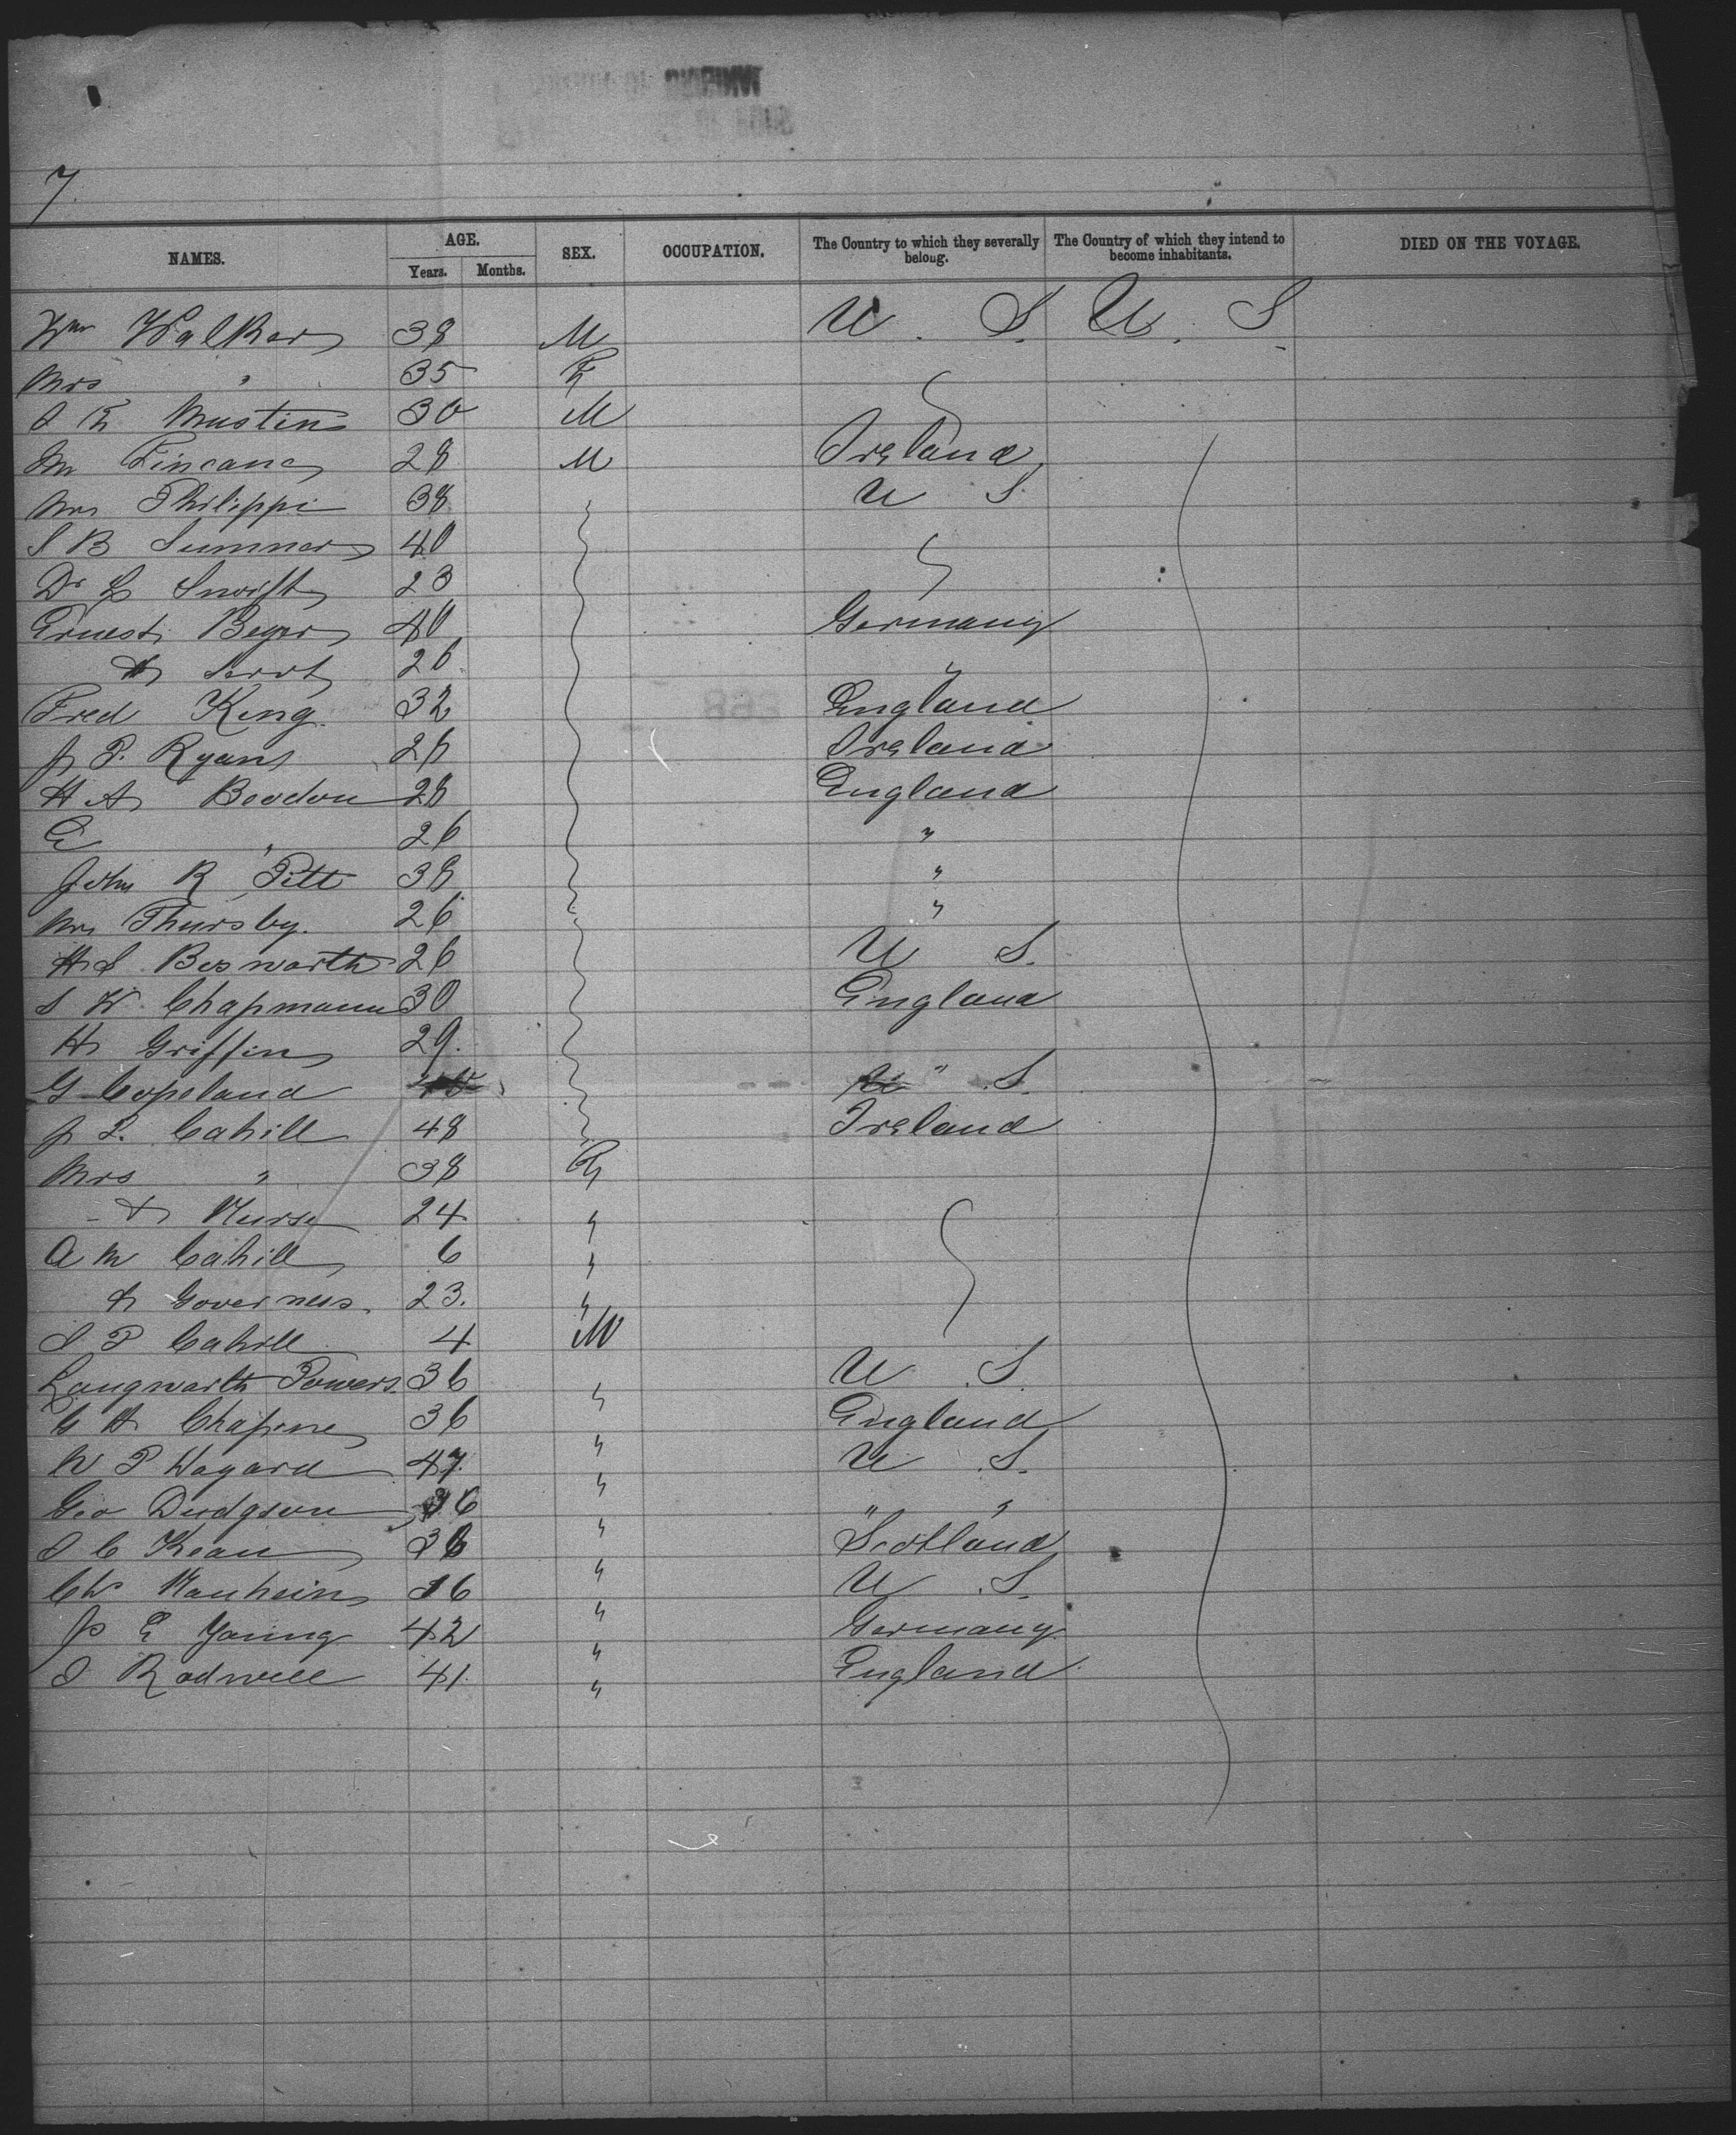 7.
NAMES. AGE. Years. Months. SEX. OCCUPATION. The Country to which they severally belong. The Country of which they intend to become inhabitants. DIED ON THE VOYAGE.
Wm Walker 38 M U. S. U. S.
Mrs " 35 F
Mustin 30 M
28 M Ireland
Philippi 38 U S.
S B Sumner 40
Dr L Swift 23
Ernest Beyer 40 Germany
& Servt 26 "
Fred King. 32 England
J P. Ryan 26 Ireland
H A 28 England
E " 26 "
John R Pitt 38 "
Mrs Thursby. 26 "
H S Bosworth 26 U S.
S W Chapmann 30 England
H Griffin 29. "
G Copeland U S.
J P. Cahill 48 Ireland
Mrs " 38 F
& Nurse 24 "
A M Cahill 6 "
& Governess. 23. "
S P Cahill 4 M
Langworth Powers. 36 " U S.
G H 36 " England
W P Hagard 47. " U S.
Geo Dudgson 36 " " "
Kean " Scotland
Chs Manheim 36 " U S.
J E Young 42 " Germany
Radwell 41. " England